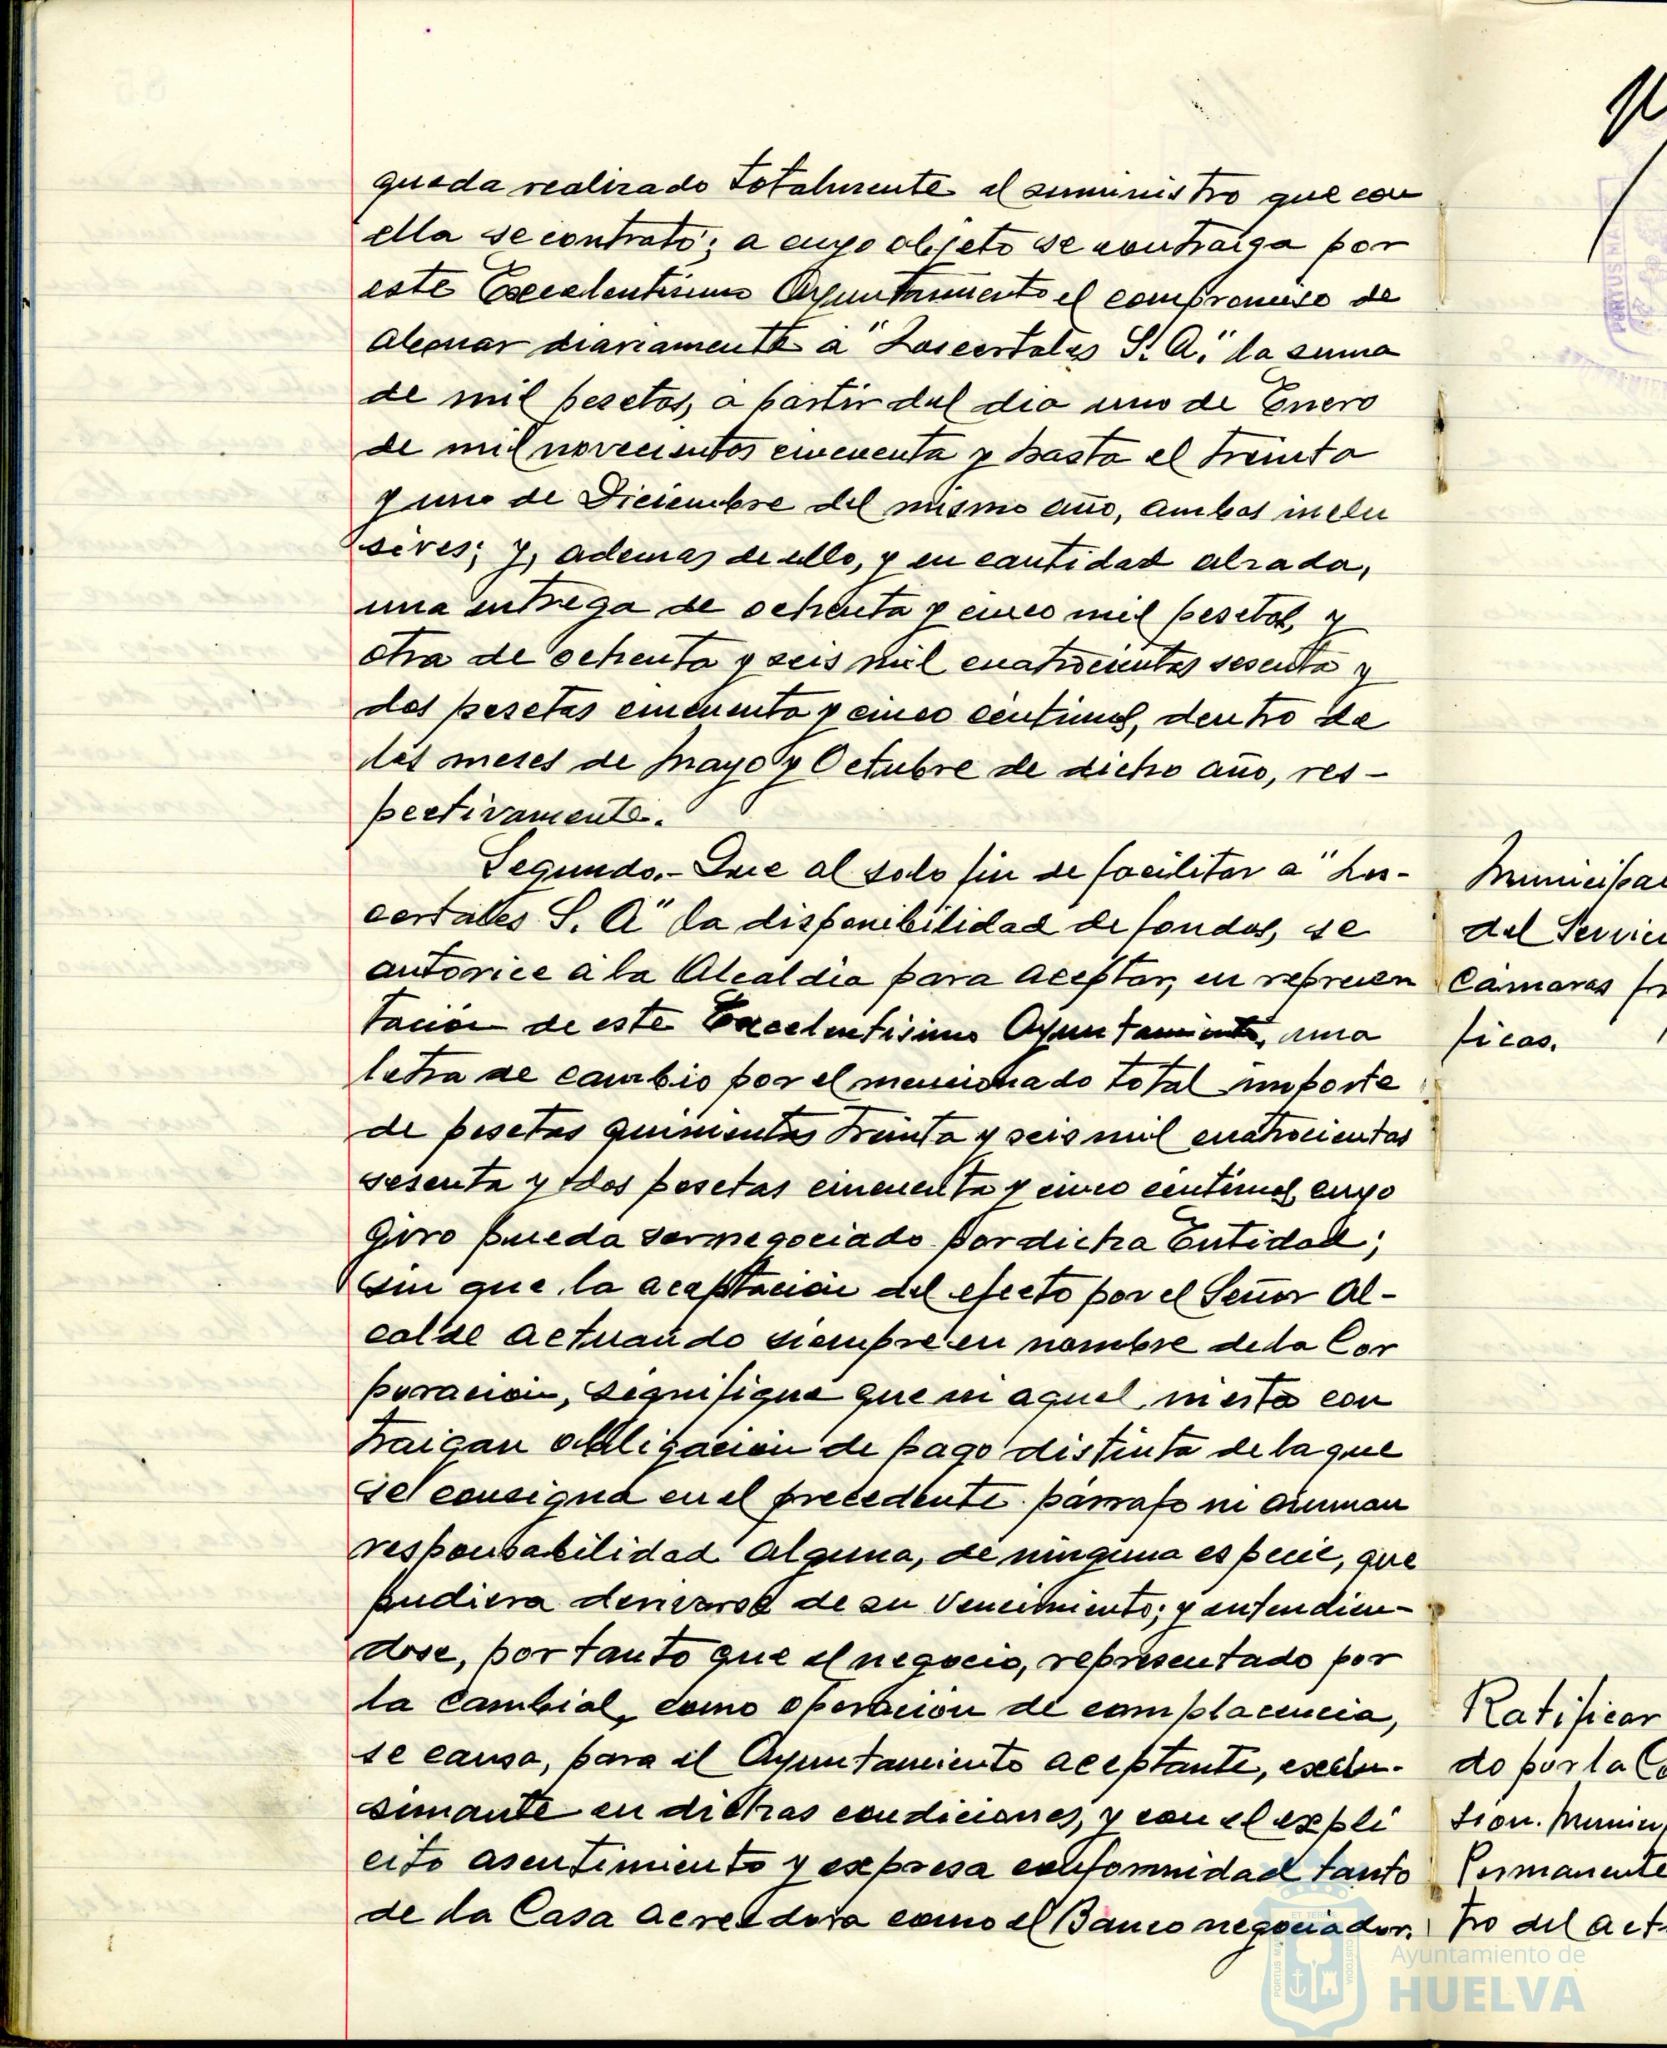 queda realizado totalmente el suministro que con
ella se contrató; a cuyo objeto se contraiga por
este Excelentísimo Ayuntamiento el compromiso de
abonar diariamente a "Loscertales S. A." la suma
de mil pesetas, a partir del dia uno de Enero
de mil novecientos cincuenta y hasta el treinta
y uno de Diciembre del mismo año, ambos inclu
sives; y, ademas de ello, y en cantidad alzada,
una entrega de ochenta y cinco mil pesetas, y
otra de ochenta y seis mil cuatrocientas sesenta y
dos pesetas cincuenta y cinco céntimos, dentro de
los meses de Mayo y Octubre de dicho año, res-
pectivamente.
Segundo.- Que al solo fin de facilitar a "Los-
certales S. A" la disponibilidad de fondos, se
autorice a la Alcaldia para aceptar, en represen
tación de este Excelentisimo Ayuntamiento, una
letra de cambio por el mencionado total importe
de pesetas quinientas treinta y seis mil cuatrocientas
sesenta y dos pesetas cincuenta y cinco centimos, cuyo
giro pueda ser negociado por dicha Entidad;
sin que la aceptación del efecto por el Señor Al-
calde actuando siempre en nombre de la Cor
poración, signifique que ni aquel, ni esta con
traigan obligación de pago distinta de la que
se consigna en el precedente párrafo ni asuman
responsabilidad alguna, de ninguna especie, que
pudiera derivarse de su vencimiento; y entendien-
dose, por tanto que el negocio, representado por
la cambial, como operación de complacencia,
se causa, para el Ayuntamiento aceptante, exclu-
simante en dichas condiciones, y con el explí
cito asentimiento y expresa conformidad tanto
de la Casa acreedora como el Banco negociador.
Municipal
del Servici
Cámaras fri
ficas.
Ratificar
do por la Co
sion Munici
Permanente
tro del act
Ayuntamiento de
HUELVA